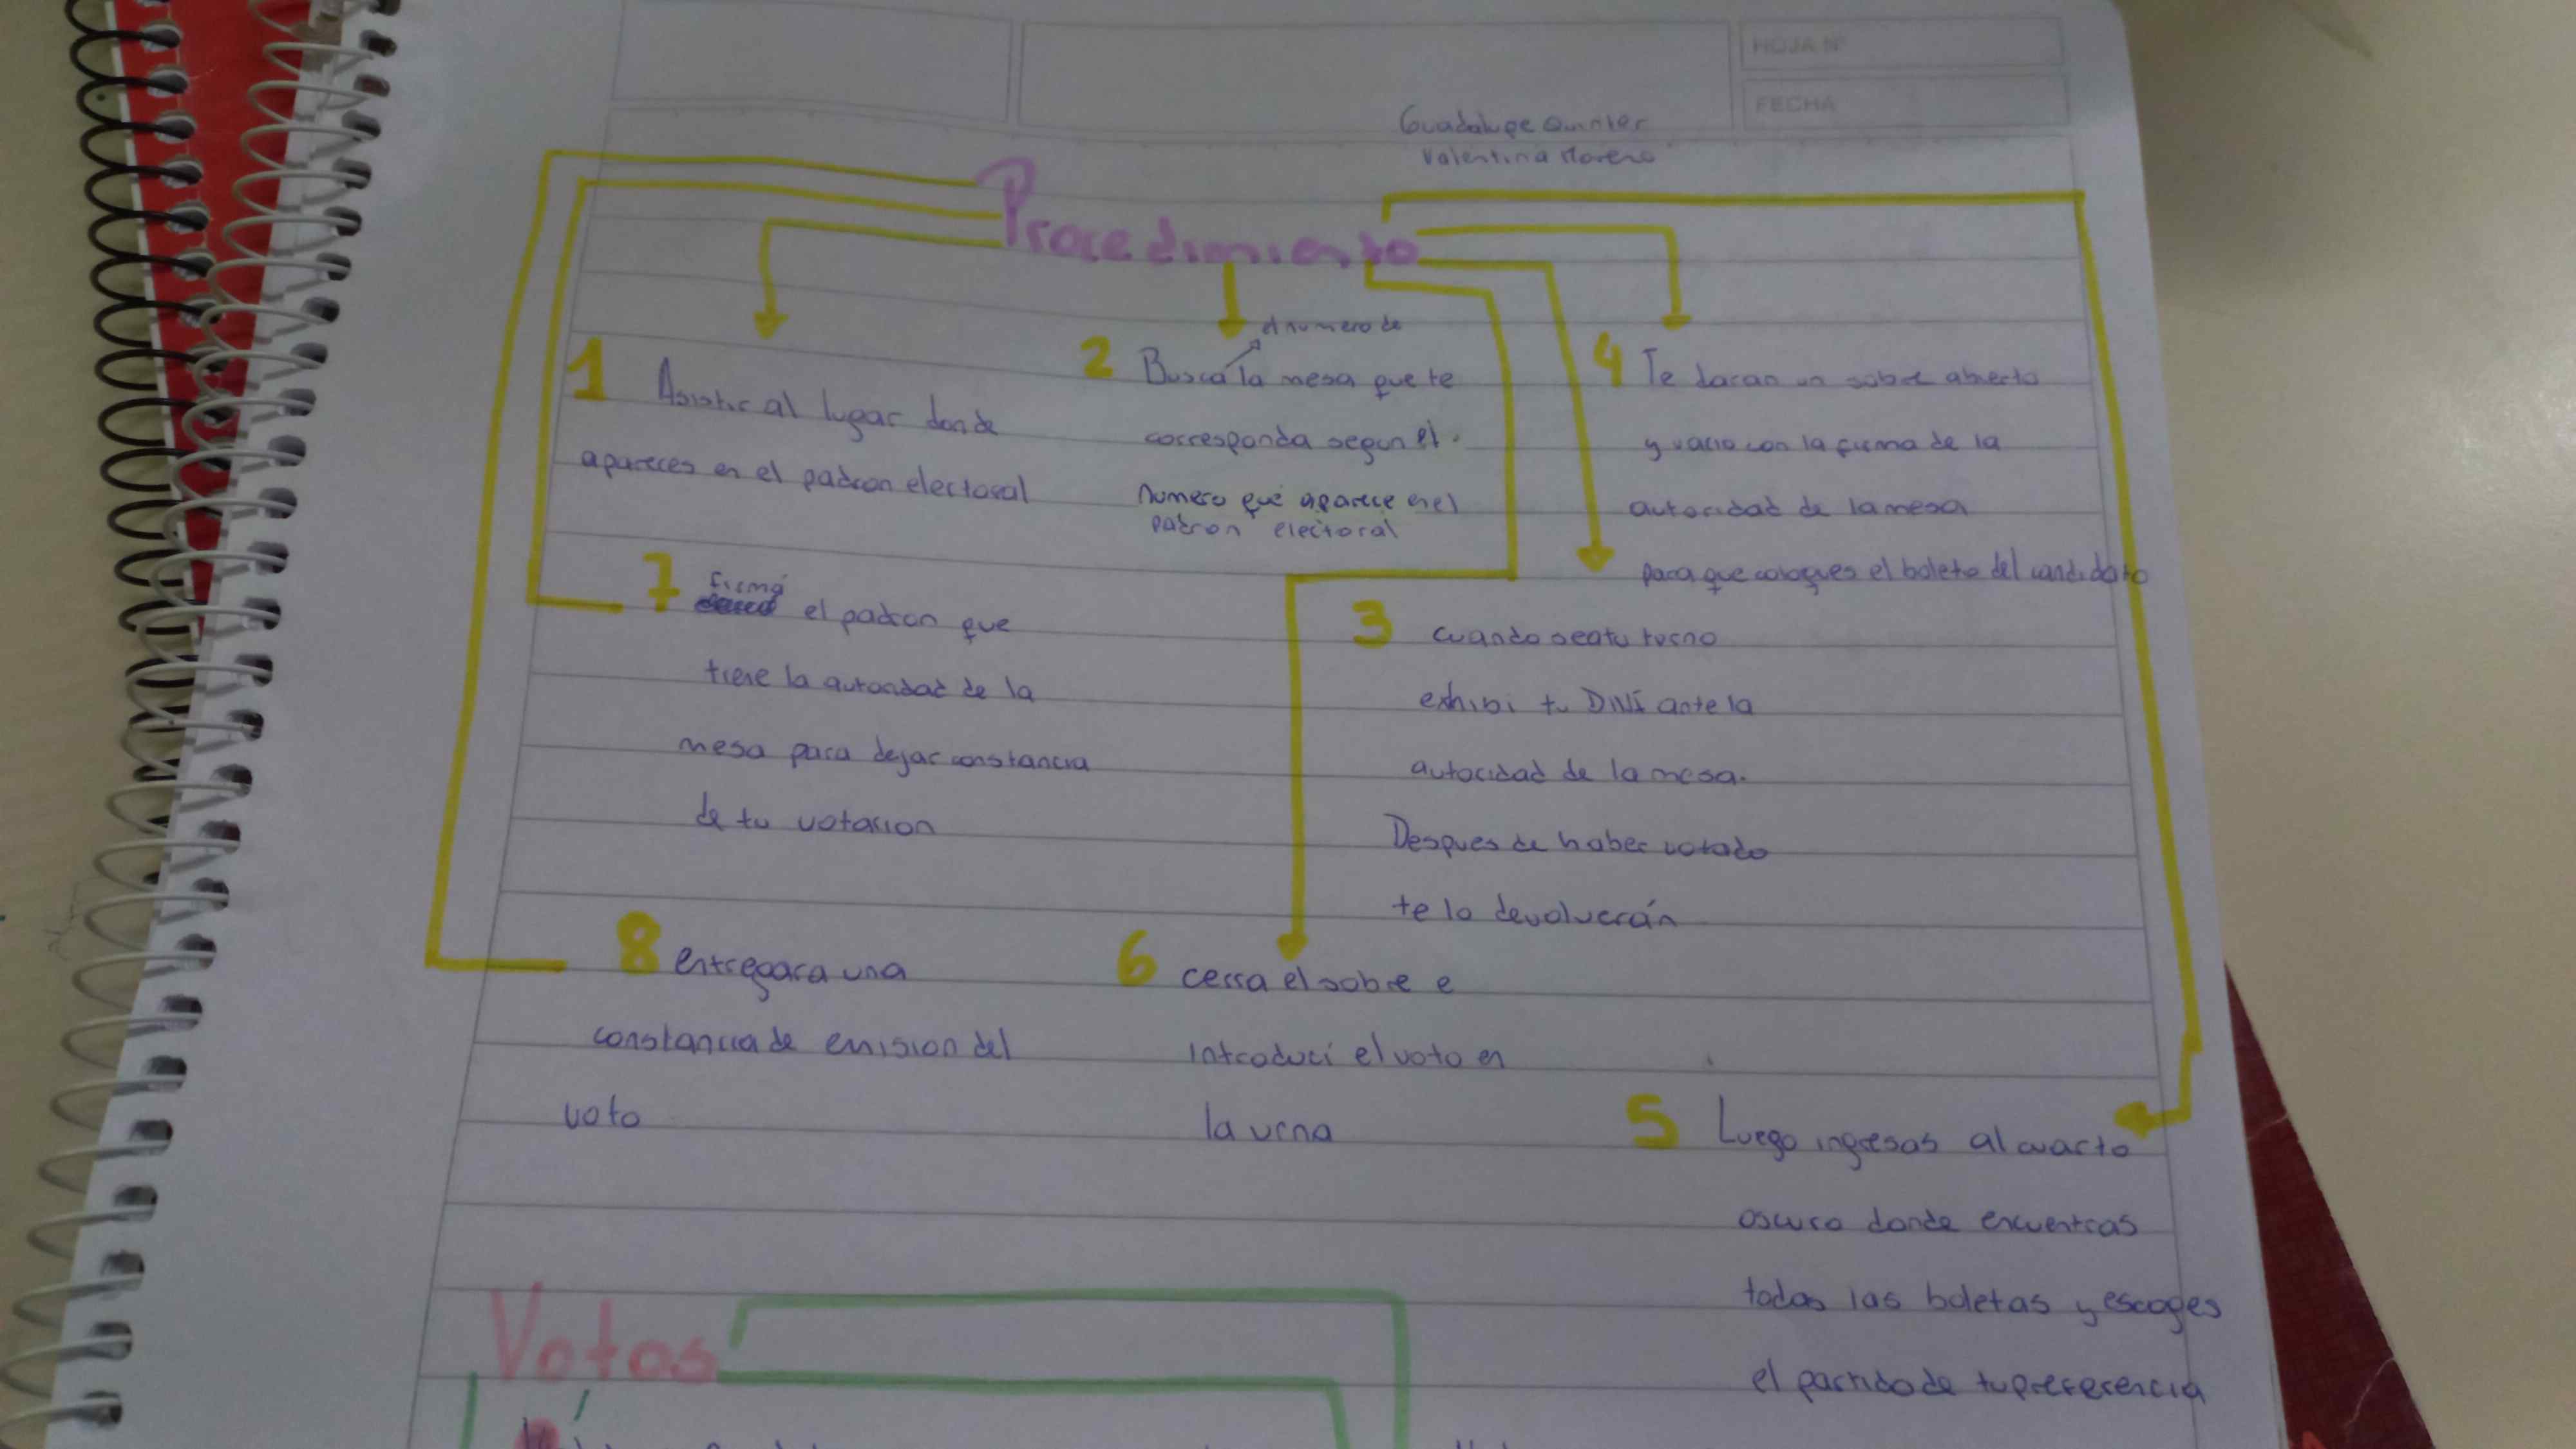 HOJA Nº
FECHA
Guadalupe
Valentina Moreno
Procedimiento
1 Asistir al lugar donde
apareces en el padron electoral
el numero de
2 Buscá la mesa que te
corresponda segun el
numero que aparece en el
padron electoral
4 Te daran un sobre abierto
y vacio con la firma de la
autoridad de la mesa
para que coloques el boleto del candidato
3 cuando sea tu turno
exhibi tu DNI ante la
autoridad de la mesa.
Despues de haber votado
te lo devolverán
7 firmá el padron que
tiene la autoridad de la
mesa para dejar constancia
de tu votacion
8 entregara una
constancia de emision del
voto
6 cerra el sobre e
introducí el voto en
la urna
5 Luego ingresas al cuarto
oscuro donde encuentras
todas las boletas y escoges
el partido de tu preferencia
Votos